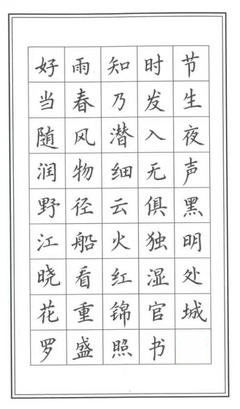 好雨知时节
当春乃发生
随风潜入夜
润物细无声
野径云俱黑
江船火独明
晓看红湿处
花重锦官城
罗盛照书